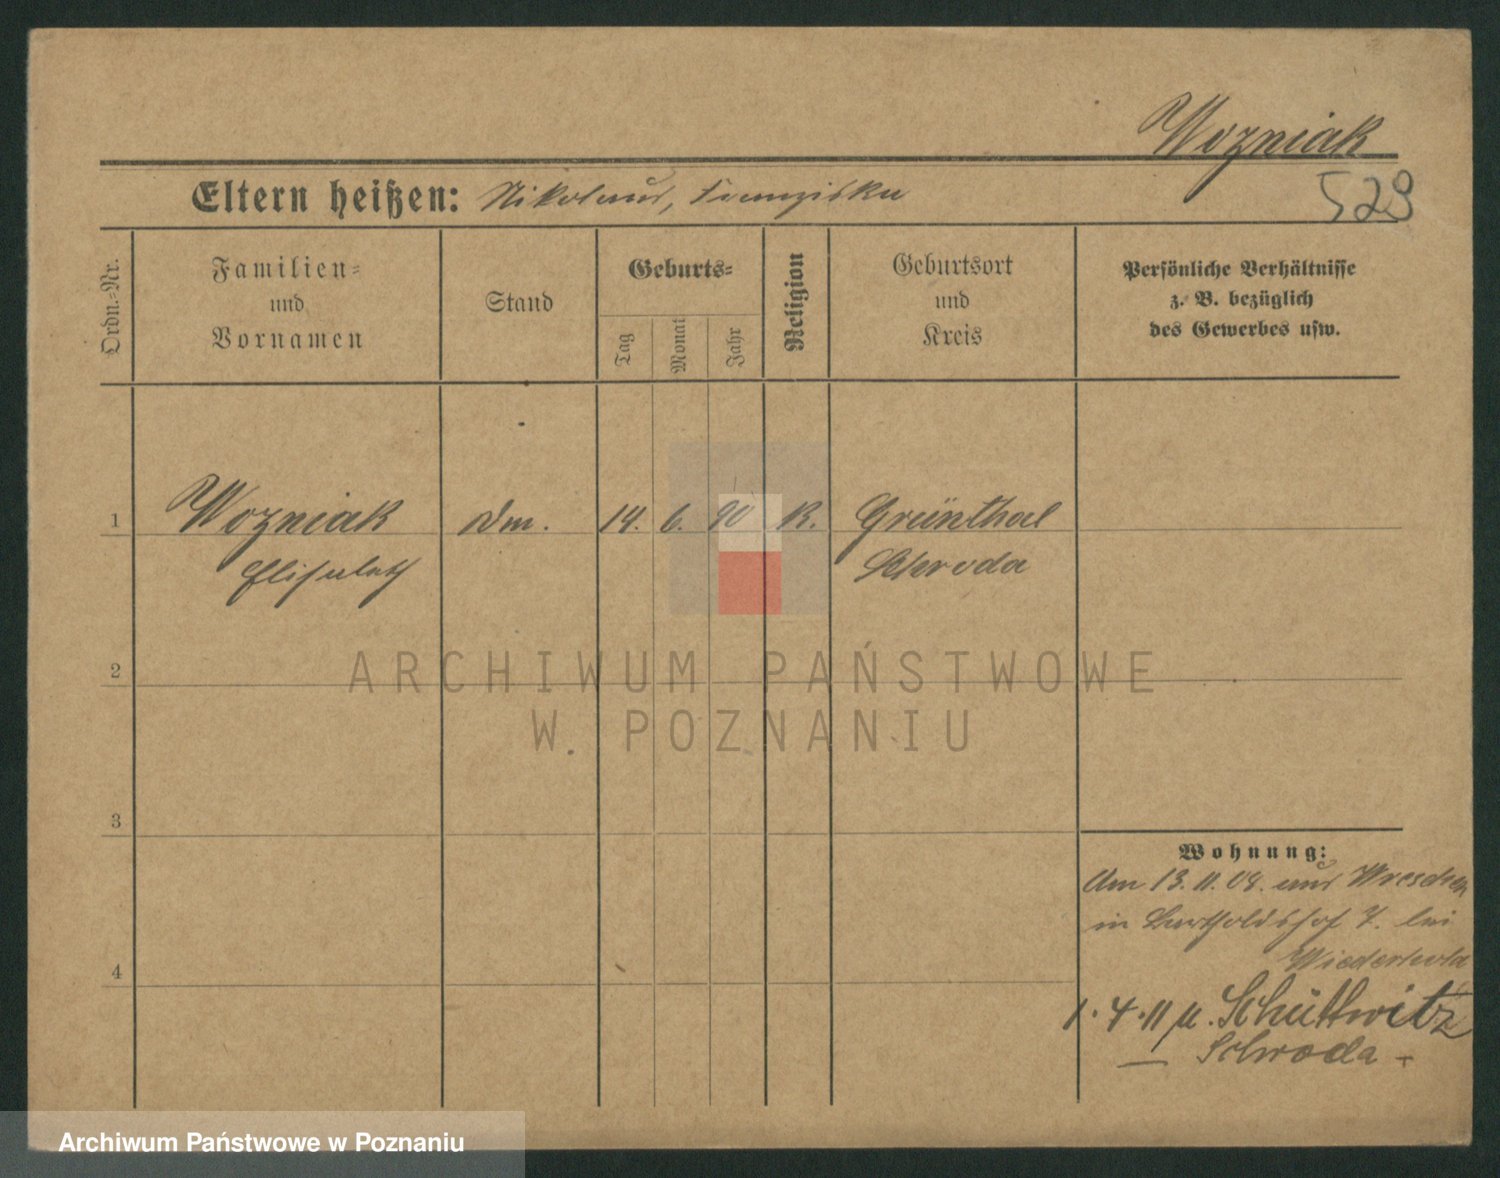 Wozniak
Eltern heißen: Nikolaus, Franziska
529
Ordn.-Nr.
Familien-
und
Vornamen
Stand
Geburts-
Tag
Monat
Jahr
Religion
Geburtsort
und
Kreis
Persönliche Verhältnisse
z. B. bezüglich
des Gewerbes usw.
1 Wozniak Dm. 14. 6. 90 K. Grünthal
Elisabeth Schroda
2
ARCHIWUM PAŃSTWOWE
W POZNANIU
3
Wohnung:
Am 13. 11. 08. aus Wreschen
in Bertholdshof 7. bei
4
1. 4. 11 Schüttwitz
Schroda
Archiwum Państwowe w Poznaniu